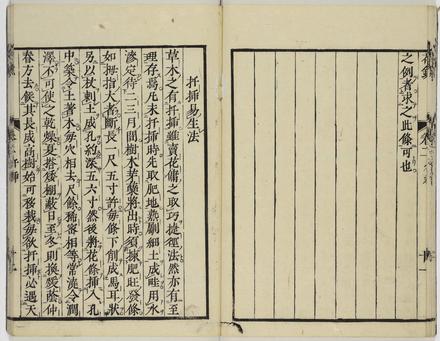 之例者求之此條可也
扦插易生法
草木之有扦插雖賣花傭之取巧捷徑法然亦有至
理存焉凡未扦插時先取肥地熟劚細土成畦用水
滲定待二三月間樹木芽蘖將出時須揀肥旺發條
如拇指大者斷長一尺五寸許毎條下削成馬耳狀
另以杖刺土成孔約深五六寸然後將花條插入孔
中築令土著木毎穴相去尺餘稀密相等常澆令潤
澤不可使之乾燥夏搭矮棚蔽日至冬則換煖蔭仲
春方去候其長成高樹始可移栽毎欲扦插必遇天